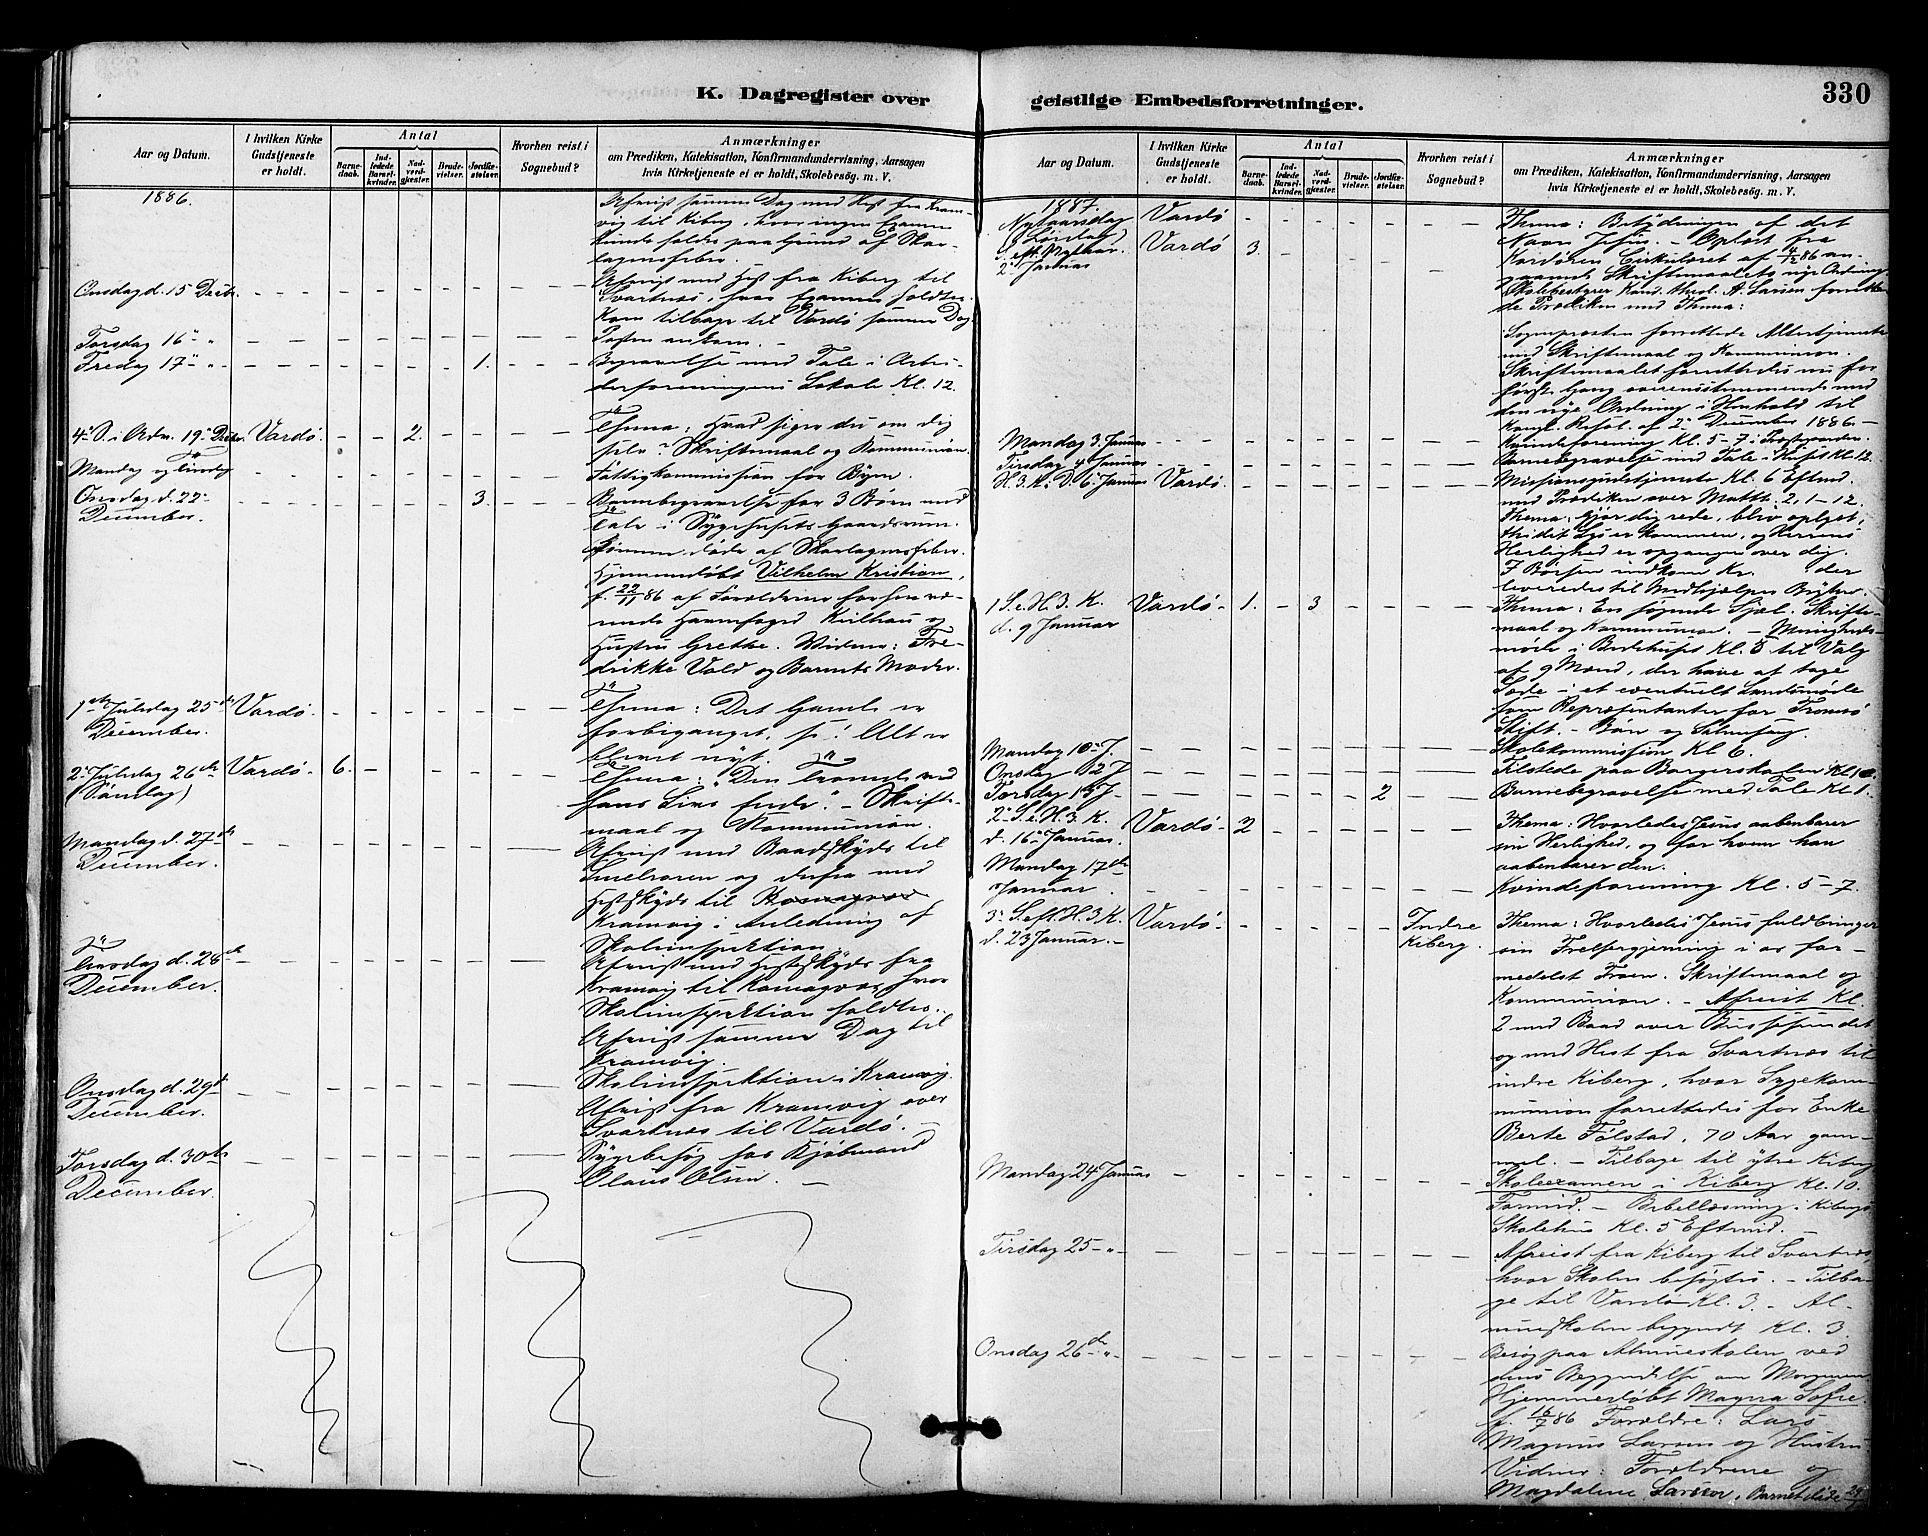 330
K. Dagregister over geistlige Embedsforretninger.
Aar og Datum.
I hvilken Kirke
Gudstjeneste
er holdt.
Antal
Barne-
daab.
Ind-
ledede
Barsel-
kvinder.
Nad-
verd-
gjester.
Brude-
vielser.
Jordfæ-
stelser.
Hvorhen reist i
Sognebud?
Anmærkninger
om Prædiken, Katekisation, Konfirmandundervisning, Aarsagen
hvis Kirketjeneste ei er holdt, Skolebesøg. m. V.
1886.
Afreist samme Dag med Hest fra Kram-
vig til Kiberg, hvor ingen Examen
kunde holdes paa Grund af Skar-
lagensfeber.
Onsdag d. 15 Decbr.
Afreist med Hest fra Kiberg til
Svartnæs, hvor Examen holdtes.
Kom tilbage til Vardø samme Dag.
Torsdag 16 "
Posten ankom. —
Fredag 17 " 1.
Begravelse med Tale i Arbei-
derforeningens Lokale Kl. 12.
4 S. i Adv. 19 Decbr. Vardø. 2.
Thema: Hvad siger du om dig
selv? Skriftemaal og Kommunion.
Mandag og Tirsdag
Fattigkommission for Byen.
Onsdag d. 22
December. 3.
Barnebegravelse for 3 Børn med
Tale i Sygehusets Gaardsrum.
døde af Skarlagensfeber.
Hjemmedøbt Vilhelm Kristian,
f. 22/11 86 af Forældrene forhenvæ-
rende Havnefoged Keilhau og
Hustru Grethe. Vidne: Fre-
drikke Vold og Barnets Moder.
1ste Juledag 25de
December. Vardø.
Thema: Det Gamle er
forbiganget, se! Alt er
blevet nyt.
2. Juledag 26de
(Søndag) Vardø 6.
Thema: Den Gamle ved
hans Livs Ende. — Skrifte-
maal og Kommunion.
Mandag d. 27de
December.
Afreist med Baadskyds til
Smelroren og derfra med
Hestskyds til Komagvær
Kramvig i Anledning af
Skoleinspektion.
Tirsdag d. 28de
December.
Afreist med Hestskyds fra
Kramvig til Komagvær, hvor
Skoleinspektion holdtes.
Afreist samme Dag til
Kramvig.
Onsdag d. 29de
December.
Skoleinspektion i Kramvig.
Afreist fra Kramvig over
Svartnæs til Vardø. —
Torsdag d. 30te
December.
Sygebesøg hos Kjøbmand
Claus Olsen. —
Aar og Datum.
I hvilken Kirke
Gudstjeneste
er holdt.
Antal
Barne-
daab.
Ind-
ledede
Barsel-
kvinder.
Nad-
verd-
gjester.
Brude-
vielser.
Jordfæ-
stelser.
Hvorhen reist i
Sognebud?
Anmærkninger
om Prædiken, Katekisation, Konfirmandundervisning, Aarsagen
hvis Kirketjeneste ei er holdt, Skolebesøg. m. V.
1887.
Nytaarsdag
(Lørdag) Vardø
Thema: Betydningen af det
Navn Jesus. — Oplæst fra
S. eft. Nytaar.
2 Januar Vardø 3.
Kordøren Cirkulæret af 4/2 86 an-
gaaende Skriftemaalets nye Ordning
Skolebestyrer Kand. theol. A. Larsen forrette-
de Prædiken med Thema:
Sognepræsten forrettede Altertjeneste
med Skriftemaal og Kommunion.
Skriftemaalet forrettedes nu for
første Gang overensstemmende med
den nye Ordning i Henhold til
Kongl. Resol. af 2 December 1886.—
Mandag 3 Januar
Kvindeforening Kl. 5-7 i Præstegaarden.
Tirsdag 4 Januar
Barnebegravelse med Tale i Huset Kl. 12.
H. 3. K. D. 6 Januar Vardø
Missionsgudstjeneste Kl. 6 Eftmd.
med Prædiken over Matth. 2, 1-12.
Thema: Gjør dig rede, bliv oplyst,
thi dit Lys er kommen, og Herrens
Herlighed er opgangen over dig.
I Bøssen indkom Kr. der
leveredes til Medhjælper
1 S. e. H. 3. K.
d. 9 Januar Vardø 1. 3
Thema: En søgende Sjæl. Skrifte-
maal og Kommunion. — Menigheds-
møde i Bedehuset Kl. 5 til Valg
af 9 Mænd, der have at tage
Sæde i et eventuelt Landsmøde
som Repræsentanter for Tromsø
Stift. — Bøn og Salmesang.
Mandag 10 J.
Skolekommission Kl. 6.
Onsdag 12 J
Tilstede paa Borgerskolen Kl.
Torsdag 13 J 2
Barnebegravelse med Tale Kl. 1.
2 S. e. H. 3. K.
d. 16 Januar. Vardø 2
Thema: Hvorledes Jesus aabenbarer
sin Herlighed, og for hvem han
aabenbarer den.
Mandag 17de
Januar.
Kvindeforening Kl. 5-7.
3 S. eft. H. 3 K.
d. 23 Januar. Vardø Indre
Kiberg.
Thema: Hvorledes Jesus fuldbringer
sin Frelsergjerning i os for-
medelst Troen. Skriftemaal og
Kommunion. — Afreist Kl.
2 med Baad over Bussesundet
og med Hest fra Svartnæs til
indre Kiberg, hvor Sygekom-
munion forrettedes for Enke
Berte Følstad, 70 Aar gam-
mel. — Tilbage til ytre Kiberg
Mandag 24 Januar
Skoleexamen i Kiberg Kl. 10.
Formid. — Bibellæsning i Kibergs
Skolehus Kl. 5 Eftmid. —
Tirsdag 25 "
Afreist fra Kiberg til Svartnæs,
hvor Skolen besøgtes. — Tilba-
ge til Vardø Kl. 3. — Al-
mueskolen begyndt Kl. 3.
Onsdag 26de "
Besøg paa Almueskolen ved
dens Begyndelse om Morgenen
Hjemmedøbt Magna Sofie
f. 16/7 86 Forældre: Lars
Magnus Larsen og Hustru
Vidner: Forældrene og
Magdalene Larsen. Barnet døde